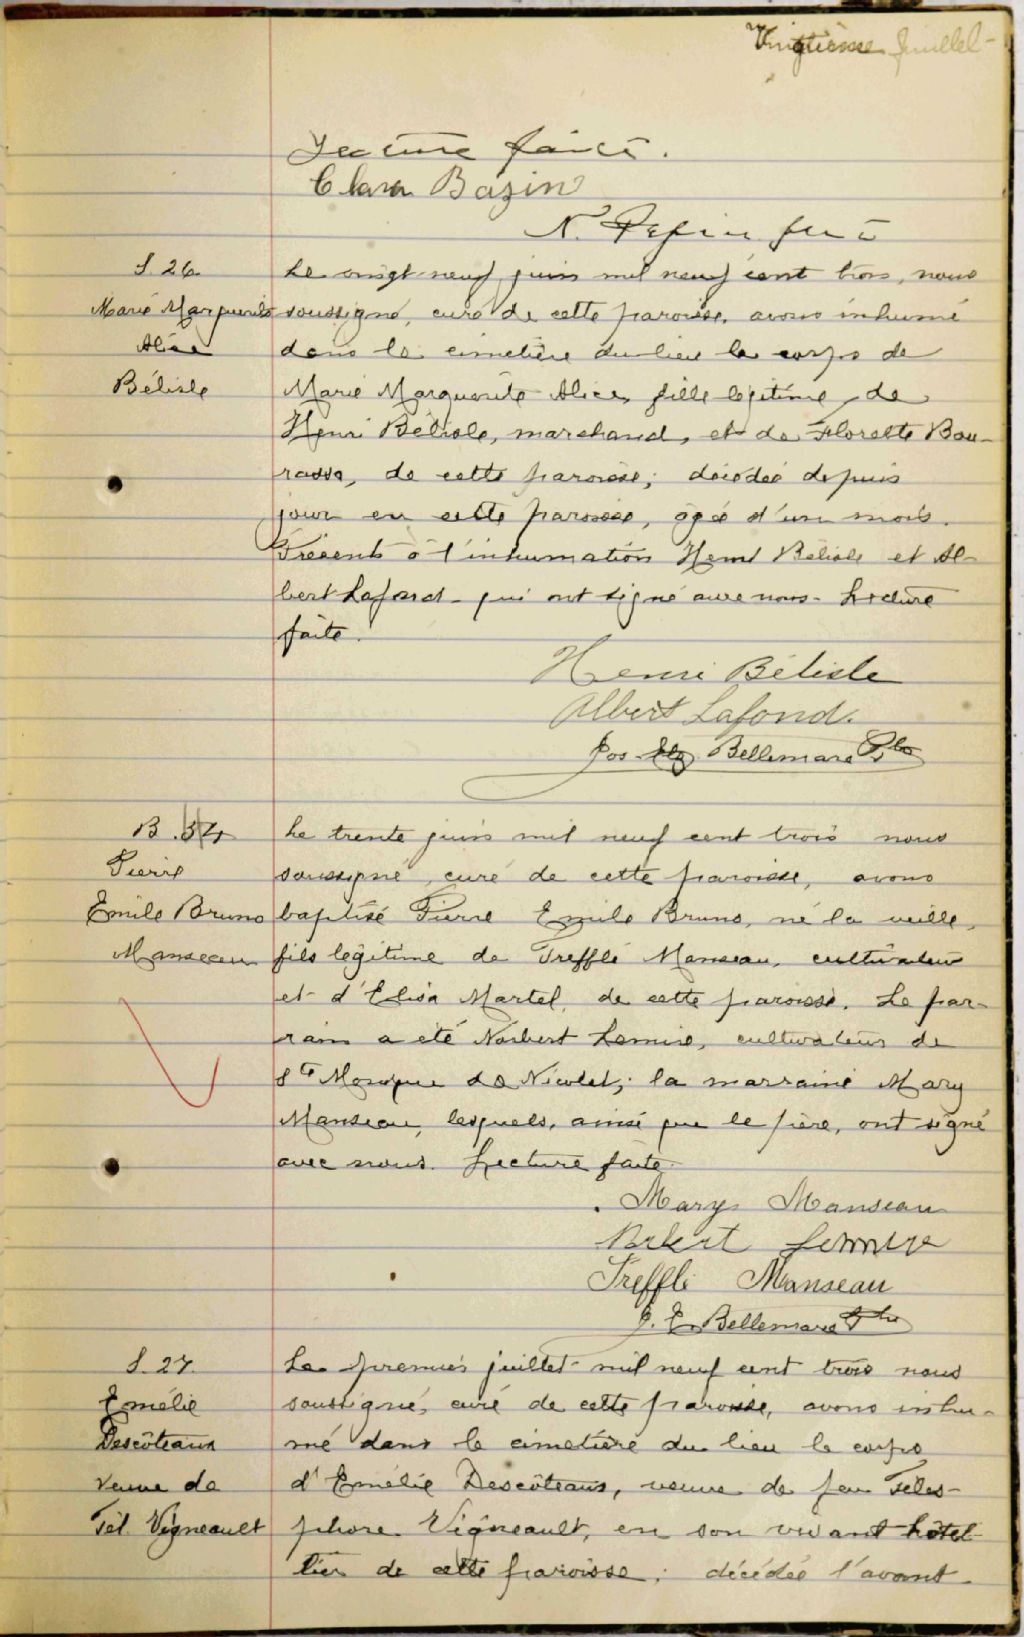 Vingtième feuillet-
Lecture faite.
Clara Bazin
N. Pepin ptre
S. 26
Marie Marguerite
Alice
Bélisle
Le vingt-neuf juin mil neuf cent trois, nous
soussigné, curé de cette paroisse, avons inhumé
dans le cimetière du lieu le corps de
Marie Marguerite Alice, fille légitime de
Henri Bélisle, marchand, et de Florette Bou-
rassa, de cette paroisse; décédée depuis
jour en cette paroisse, âgée d'un mois.
Présents à l'inhumation Henri Bélisle et Al-
bert Lafond qui ont signé avec nous. Lecture
faite.
Henri Bélisle
Albert Lafond.
Jos. Elz. Bellemare Ptre
B. 34
Pierre
Emile Bruno
Manseau
Le trente juin mil neuf cent trois nous
soussigné, curé de cette paroisse, avons
baptisé Pierre Emile Bruno, né la veille,
fils légitime de Trefflé Manseau, cultivateur
et d'Elisa Martel, de cette paroisse. Le par-
rain a été Norbert Lemire, cultivateur de
Ste Monique de Nicolet; la marraine Mary
Manseau, lesquels, ainsi que le père, ont signé
avec nous. Lecture faite.
Mary Manseau
Norbert Lemire
Trefflé Manseau
J. E. Bellemare Ptre
S. 27.
Emélie
Descôteaux
veuve de
Tél. Vigneault
Le premier juillet mil neuf cent trois nous
soussigné, curé de cette paroisse, avons inhu-
mé dans le cimetière du lieu le corps
d'Emélie Descôteaux, veuve de feu Téles-
phore Vigneault, en son vivant hôtel-
lier de cette paroisse; décédée l'avant-